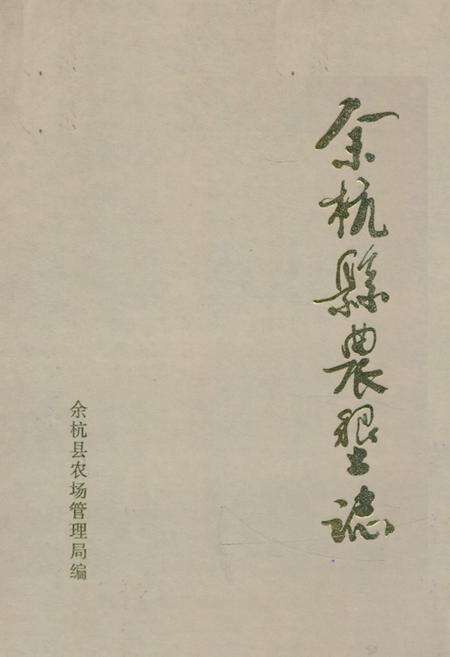 余杭縣農墾誌
余杭县农场管理局编